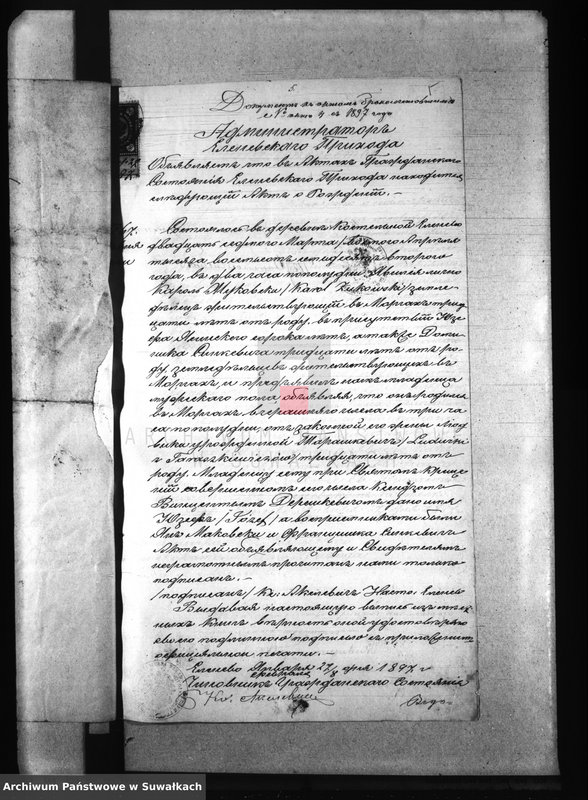 5.
Документъ къ акту бракосочетанія
с № 4 съ 1897 годъ
Администраторъ
Еленевскаго Прихода
Объявляетъ что въ Актахъ Гражданскаго
Состоянія Еленевскаго Прихода находится
слѣдующій Актъ о Рожденіи. —
Состоялось въ деревнѣ Костельной Еленево
двадцать седьмого Марта / Апрѣля
тысяча восемьсотъ семьдесятъ второго
года, въ два часа пополудни. Явился лично
Кароль Жуковски / Karol Żukowski / земле-
дѣлецъ жительствующій въ Моргахъ трид-
цати лѣтъ отъ роду, въ присутствіи Юзе-
фа сорока лѣтъ а также Доми-
ника Синкевича тридцати лѣтъ отъ ро-
ду земледѣльцевъ жительствующихъ въ
Моргахъ, и предъявилъ намъ младенца
мужескаго пола, объявляя, что онъ родился
въ Моргахъ вчерашняго числа въ три ча-
са пополудни, отъ законной его жены Люд-
вики урожденной Тарашкевичъ / Ludwiki
z Taraszkiewiczów / тридцати лѣтъ отъ
роду. Младенцу сему при Святомъ Креще-
ніи совершенномъ сего числа Ксендзомъ
Винцентымъ Дерешкевичомъ дано имя
Юзефъ / Józef / а воспріемниками были
Янъ Маковски и Францишка Синкевичъ
Актъ сей объявляющему и Свидѣтелямъ
неграмотнымъ прочитанъ нами только
подписанъ. —
/ подписалъ / Кс. Акелевичъ Насто. Еленево
Выдавая настоящую выпись изъ
книгъ вѣрность оной удостовѣряю
своею подписью съ приложеніемъ
оффиціальной печати. —
Еленево Января 27/8 Февраля дня 1897 г
Чиновникъ Гражданскаго Состоянія
Кс.
Archiwum Państwowe w Suwałkach